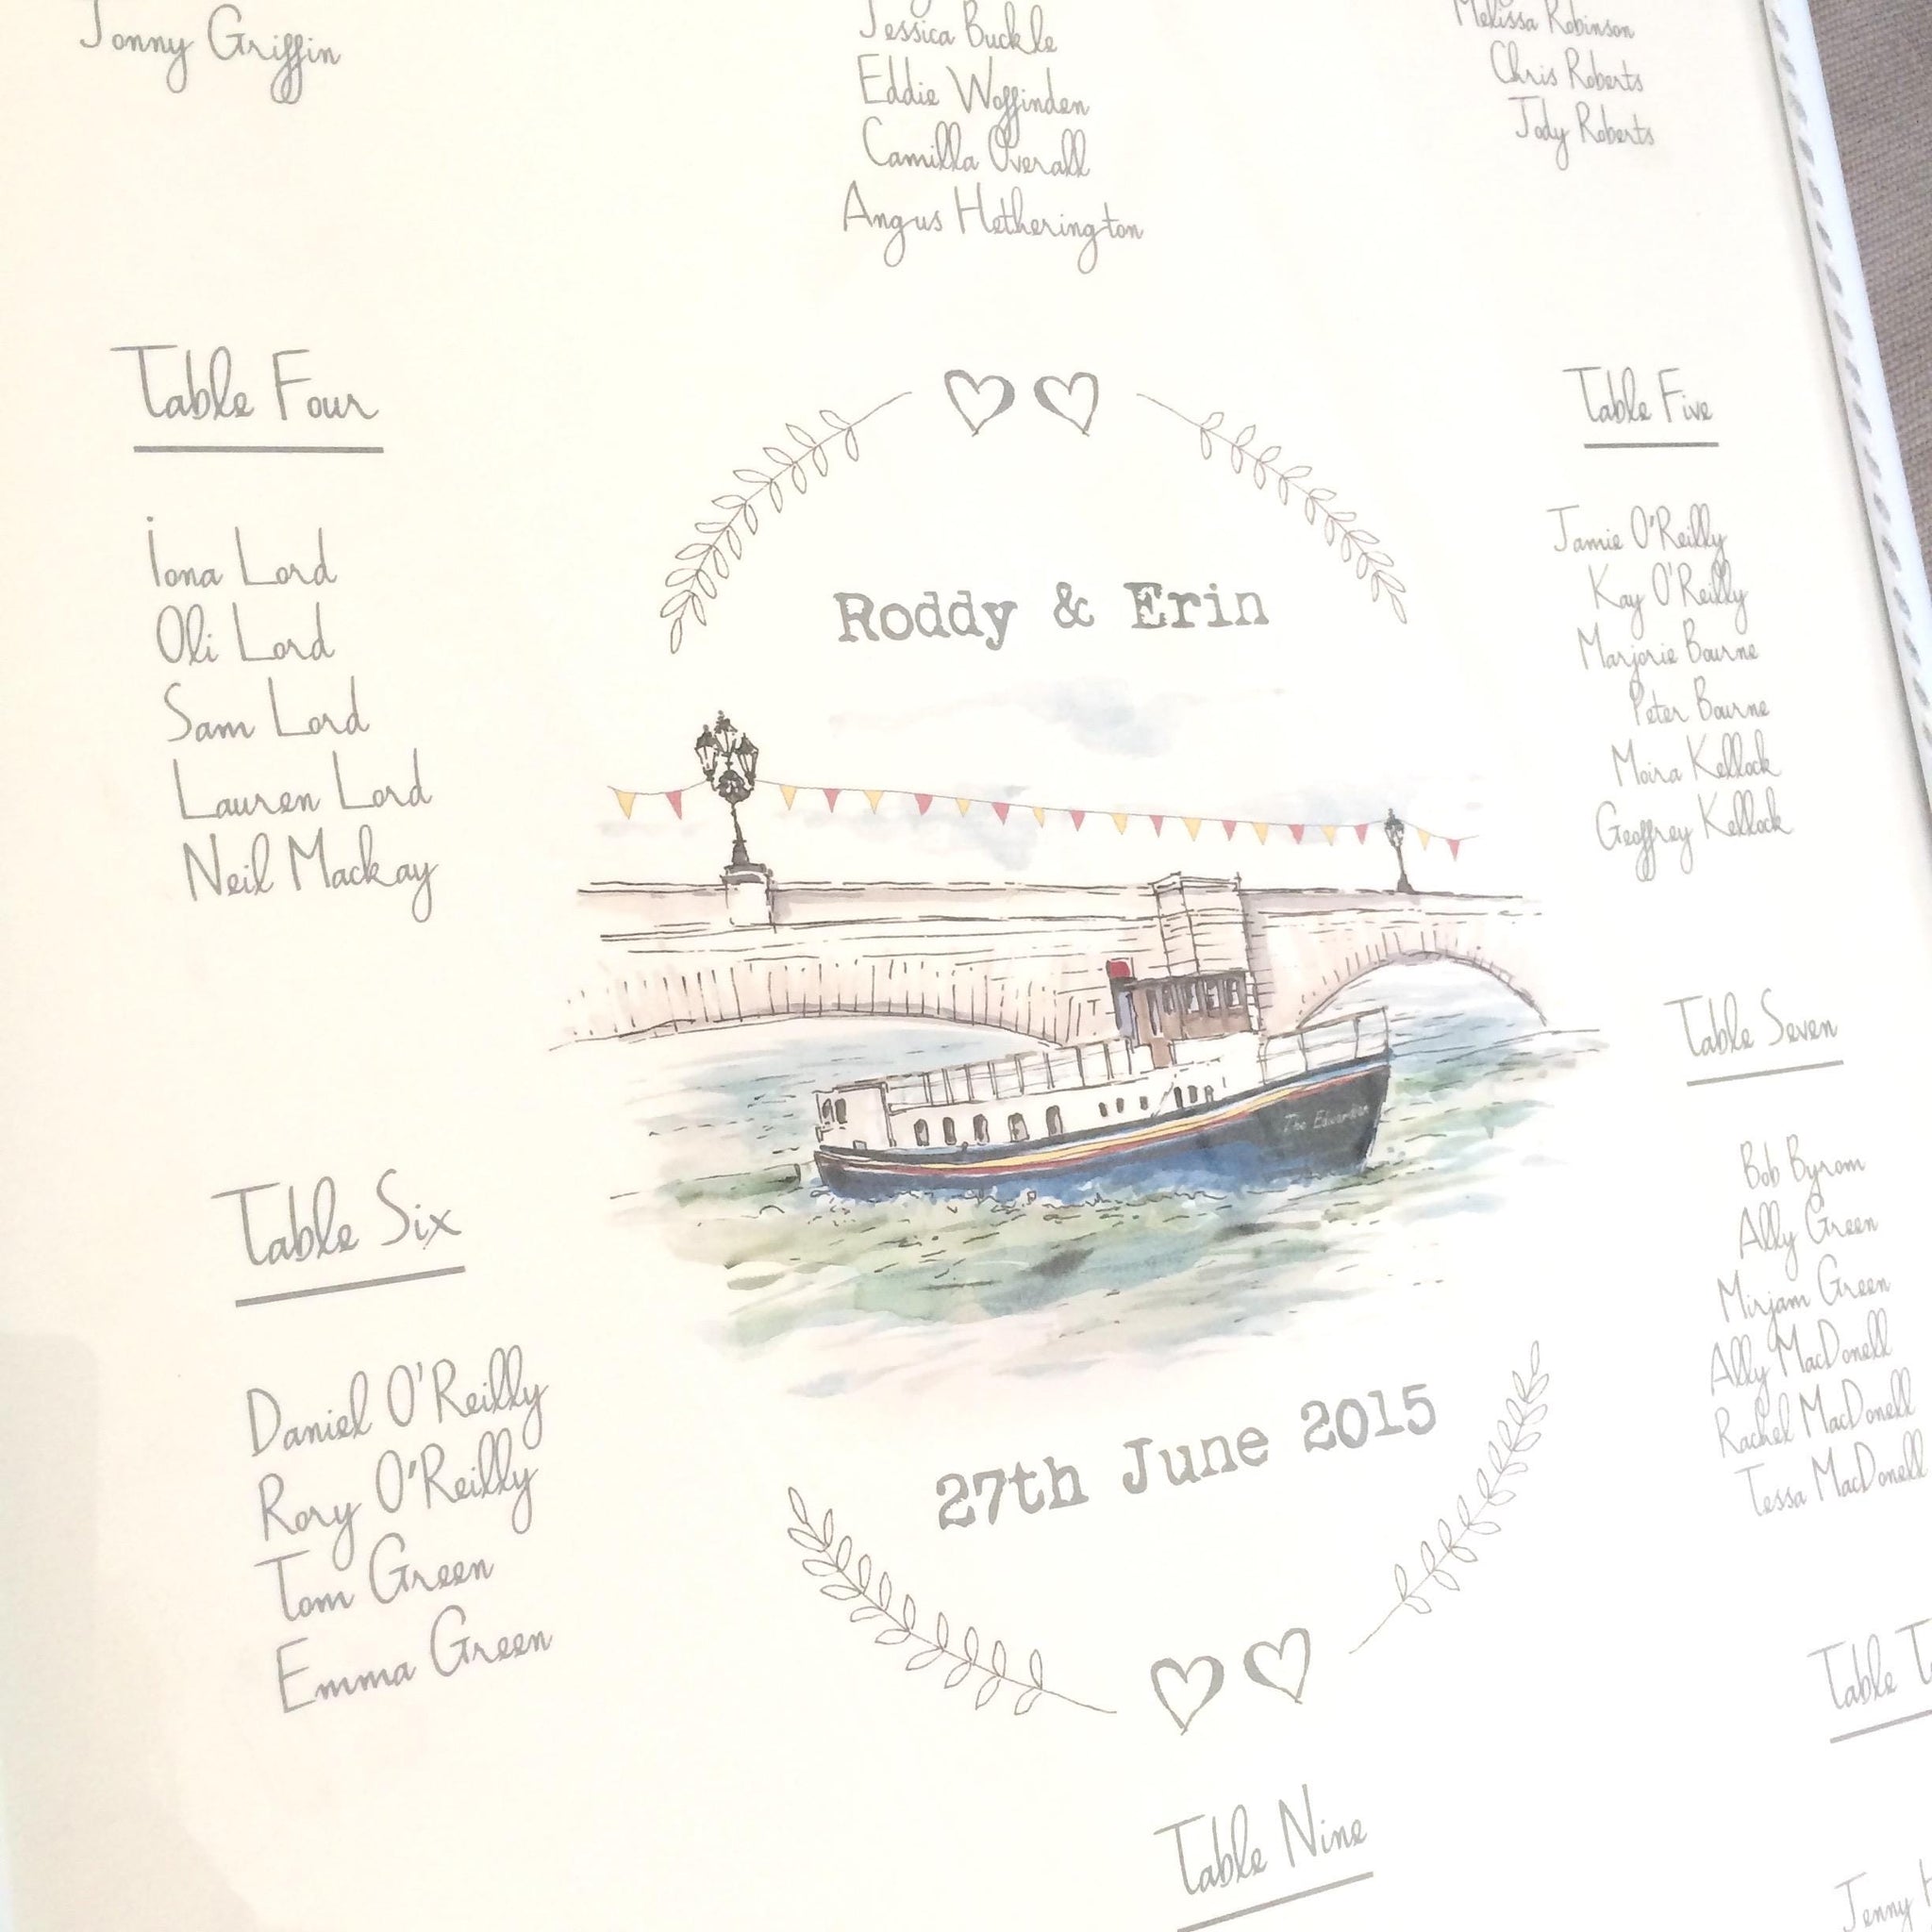 Jonny Griffin
Jessica Buckle
Eddie Woffinden
Camilla Overall
Angus Hetherington
Melissa Robinson
Chris Roberts
Jody Roberts
Table Four
Iona Lord
Oli Lord
Sam Lord
Lauren Lord
Neil Mackay
Roddy & Erin
The
27th June 2015
Table Five
Jamie O'Reilly
Kay O'Reilly
Marjorie Bourne
Peter Bourne
Moira Kellock
Geoffrey Kellock
Table Six
Daniel O'Reilly
Rory O'Reilly
Tom Green
Emma Green
Table Seven
Bob Byrom
Ally Green
Mirjam Green
Ally MacDonell
Rachel MacDonell
Tessa MacDonell
Table Nine
Table
Jenny